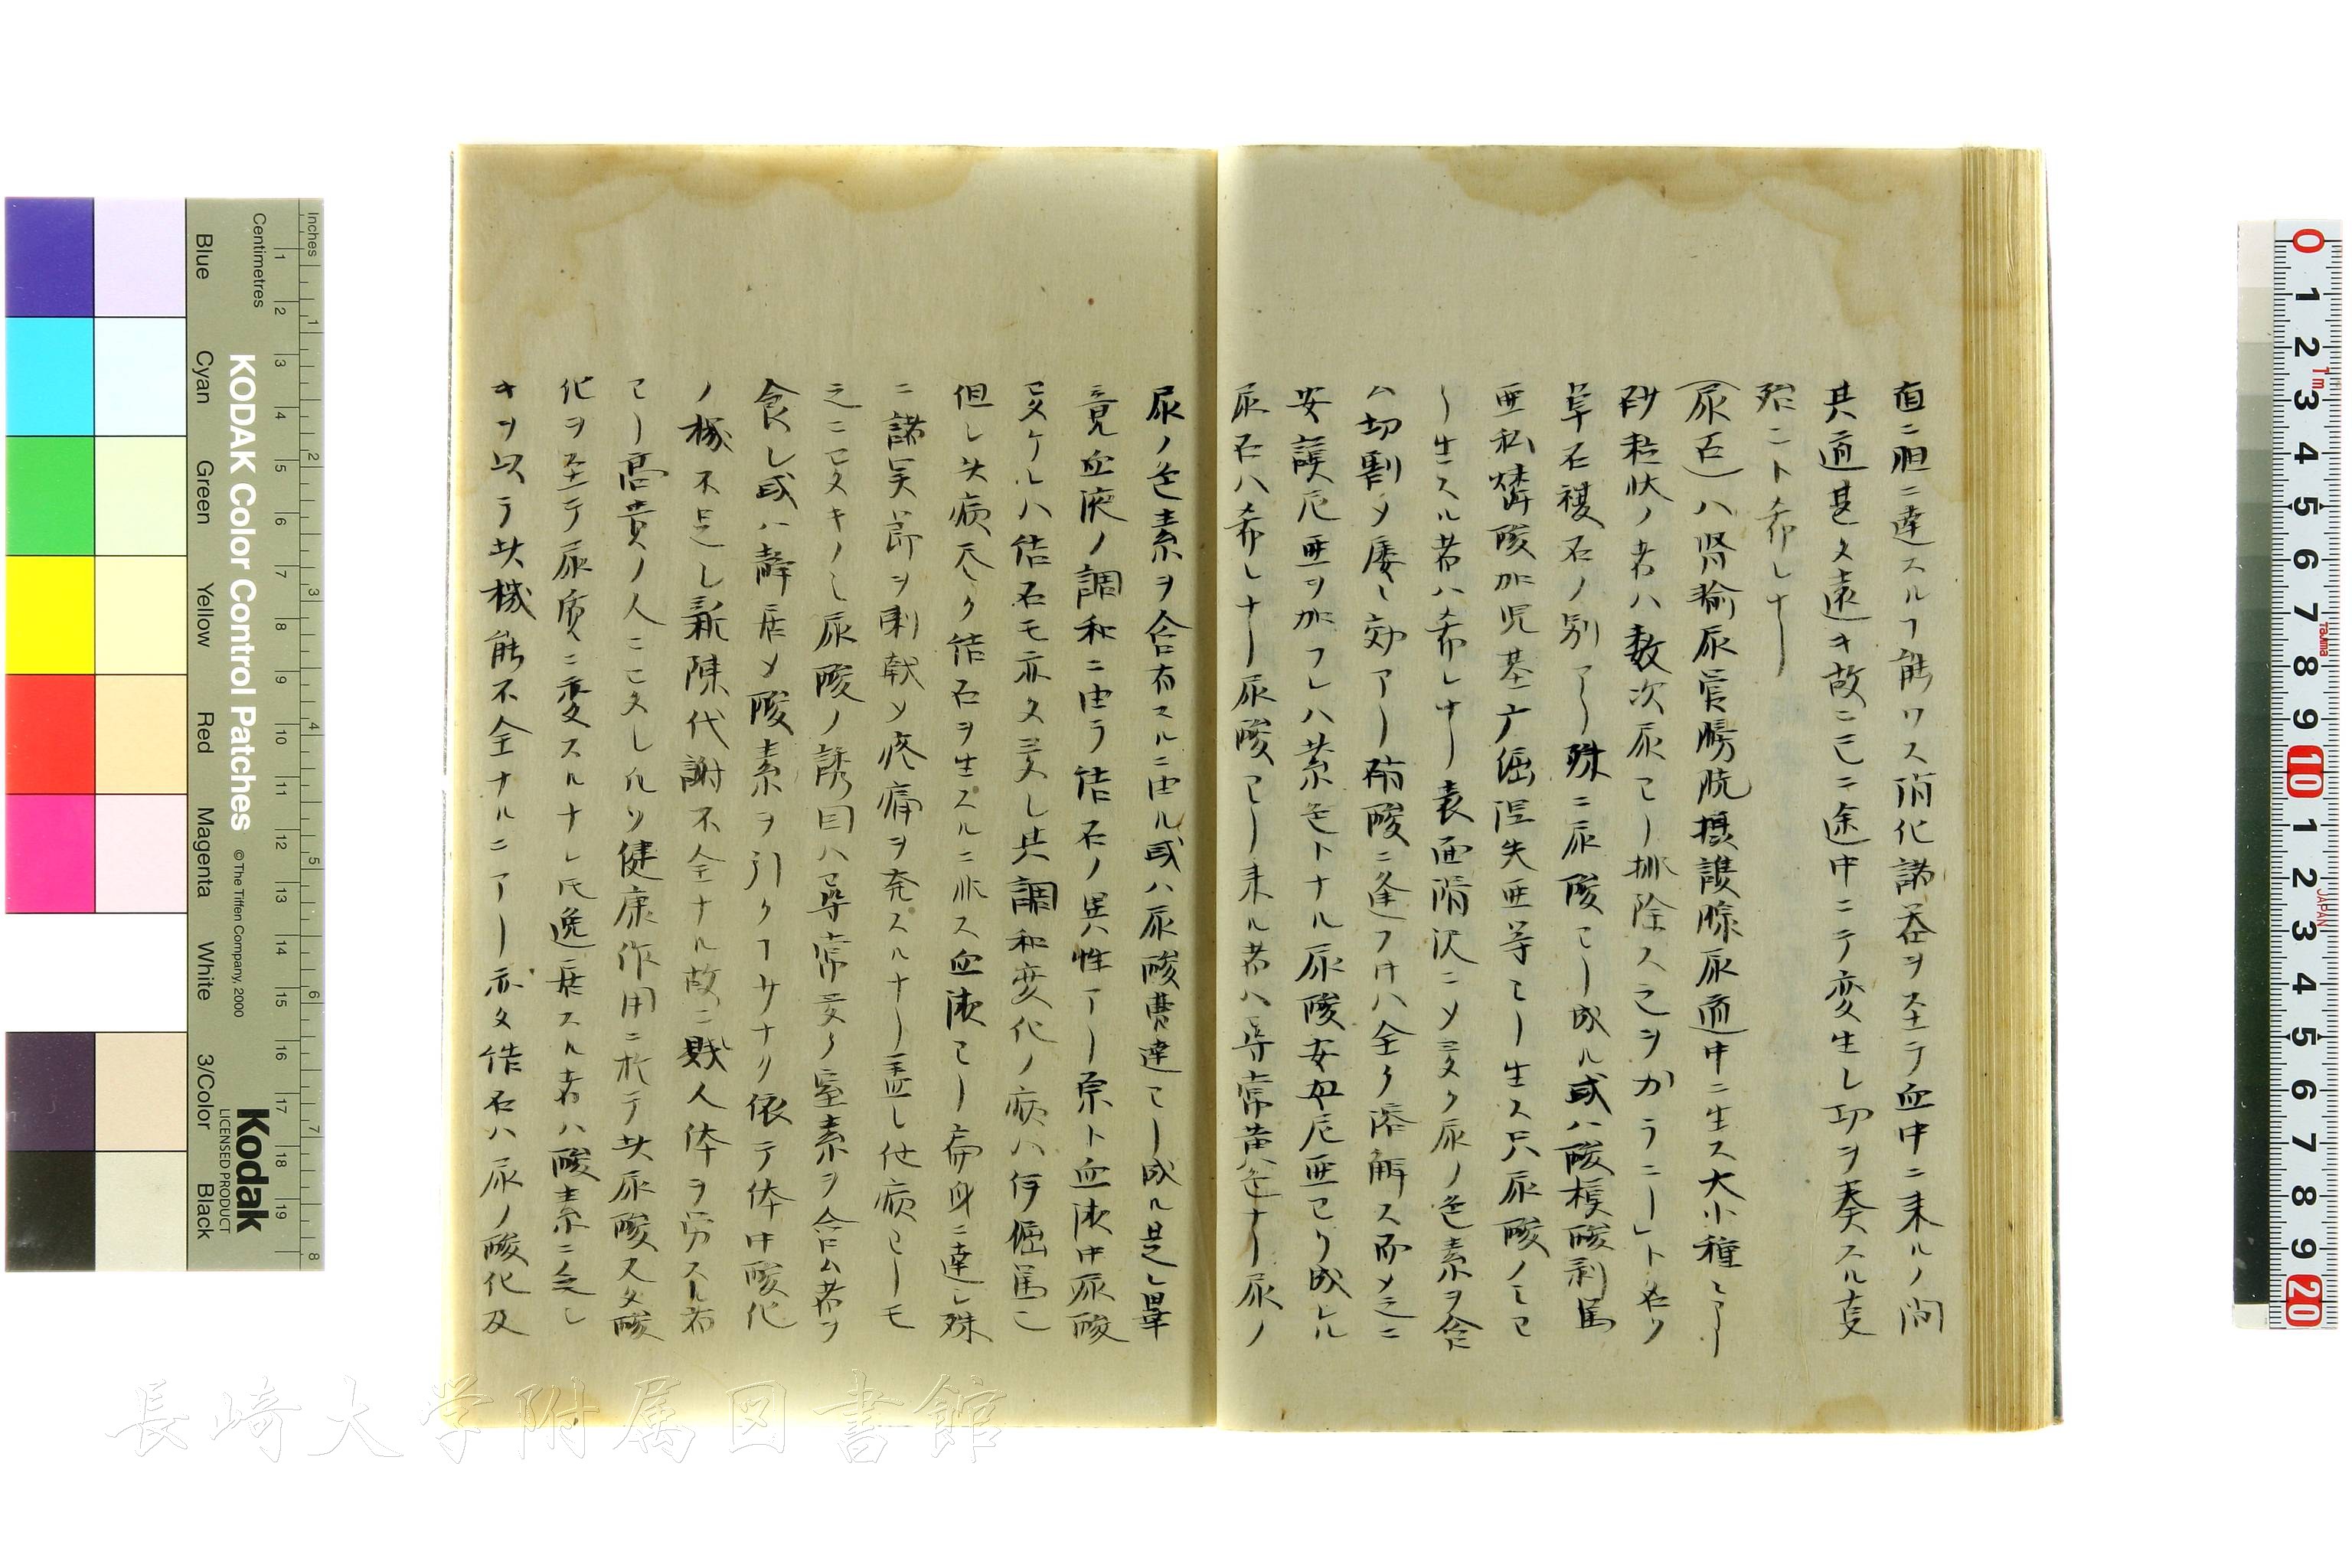 直ニ胆ニ達スルヿ能ワス消化諸器ヲ至テ血中ニ来ルノ間
其道甚タ遠キ故ニ已ニ途中ニテ変生シ功ヲ奏スル
殆ニト希レナリ
(尿石)ハ腎輸尿管膀胱摂護腺尿道中ニ生ス大小種々アリ
砂粒状ノ者ハ数次尿ヨリ排除ス之ヲガラニー」ト名ク
単石複石ノ別アリ殊ニ尿酸ヨリ成ル或ハ酸模酸剥篤
亜私燐酸加児基亠倔涅失亜等ヨリ生ス只尿酸ノミヨ
リ生スル者ハ希レナリ表面滑沢ニメ多ク尿ノ色素ヲ含
ム切割メ屡々効アリ硝酸ニ逢フ片ハ全ク溶解ス而メ之ニ
安謨尼亜ヲ加フレハ紫色トナル尿酸安母尼亜ヨリ成レル
尿石ハ希レナリ尿酸ヨリ来ル者ハ尋常黄色ナリ尿ノ
尿ノ色素ヲ含有スルニ由ル或ハ尿酸曹達ヨリ成ル是レ畢
竟血液ノ調和ニ由テ結石ノ異性アリ原ト血液中尿酸
多ケレハ結石モ亦タ多シ其調和変化ノ病ハ仔倔篤ニ
但シ其病尽ク結石ヲ生スルニ非ス血液ヨリ扁身ニ達シ殊
ニ諸関節ヲ刺戟メ疼痛ヲ発スルナリ盖シ他病ヨリモ
之ニ多キノミ尿酸ノ誘因ハ尋常多ク窒素ヲ含ム者ヲ
食シ或ハ静居メ酸素ヲ引クヿ少ナク依テ体中酸化
ノ機不足シ新陳代謝不全ナル故ニ賎人体ヲ労スル者
ヨリ高貴ノ人ニ多シ凡ソ健康作用ニ於テ其尿酸ス夂酸
化ヲ至テ尿質ニ変スルナレ圧逸居スル者ハ酸素ニ乏シ
キヲ以テ其機能不全ナルニアリ亦タ結石ハ尿ノ酸化及
KODAK Color Control Patches
© The Tiffen Company, 2000
Kodak
LICENSED PRODUCT
Inches
Centimetres
Blue
Cyan
Green
Yellow
Red
Magenta
White
3/Color
Black
長崎大学附属図書館